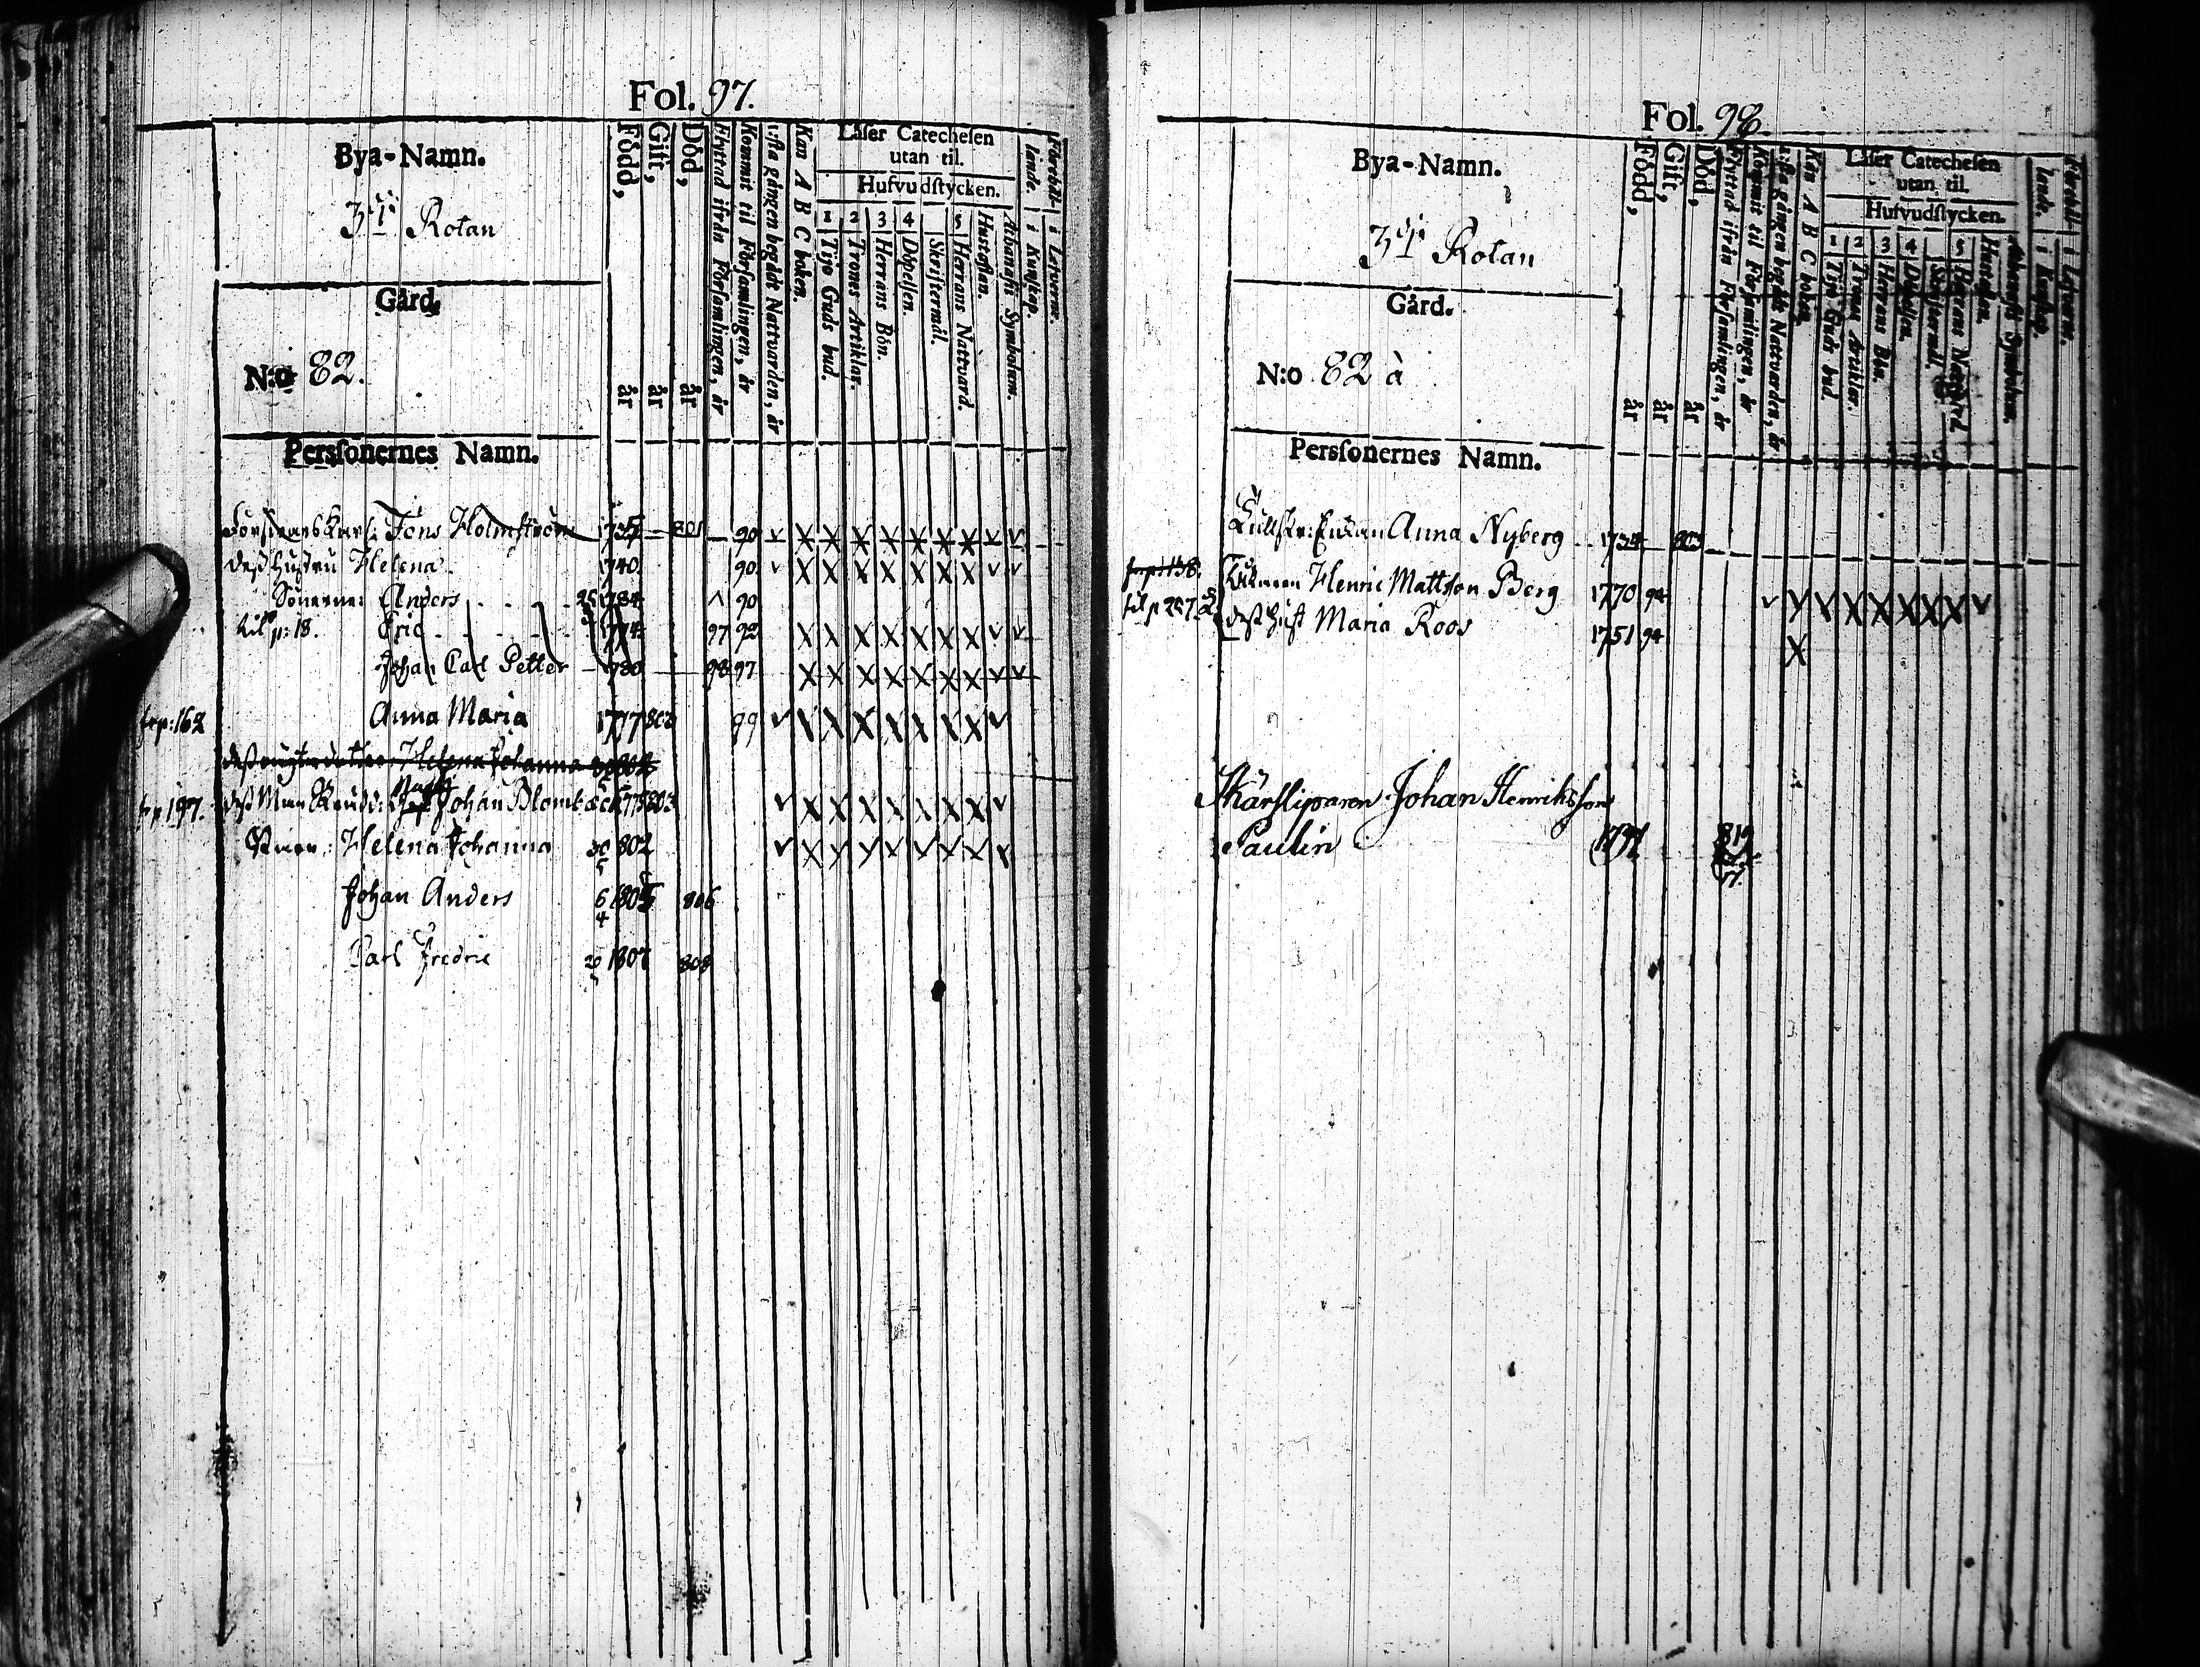 Fol. 97.
Bya-Namn.
3die Rotan
Gård.
N:o 82.
Persſonernes Namn.
Född, år
Gift, år
Död, år
Flyttad ifrån Församlingen, år
Kommit til Församlingen, år
1:sta gången begådt Nattvarden, år
Kan A B C boken.
Läser Catecheſen
utan til.
Hufvudſtycken.
1 Tijo Guds bud.
2 Trones Artiklar.
3 Herrans Bön.
4 Döpelſen.
Skriftermål.
5 Herrans Nattvard.
Huſtaflan.
Athanaſii Symbolum.
Förehållande, i Kunſkap. i Lefverne.
Jöns Holmström 1735 801 90
Deß hustru Helena 1740 90
Sönerne: Anders 25 1784 90
til p: 18. Eric 1774 97 92
Johan Carl Petter 1780 98 97
fr p: 162 Anna Maria 1777 802 99
Helena Johanna 30 802
fr p 197. Deß Man Johan Blombäck 1775 803
Helena Johanna 30/5 802
Johan Anders 6/4 1805 806
Carl Fredric 20 1807 808
Fol. 98.
Bya-Namn.
3die Rotan
Gård.
N:o 82 à
Persſonernes Namn.
Född, år
Gift, år
Död, år
Flyttad ifrån Församlingen, år
Kommit til Församlingen, år
1:sta gången begådt Nattvarden, år
Kan A B C boken.
Läser Catecheſen
utan til.
Hufvudſtycken.
1 Tijo Guds bud.
2 Trones Artiklar.
3 Herrans Bön.
4 Döpelſen.
Skriftermål.
5 Herrans Nattvard.
Huſtaflan.
Athanaſii Symbolum.
Förehållande, i Kunſkap. i Lefverne.
Enkan Anna Nyberg 1734 803
fr p: 138. Henric Mattſon Berg 1770 94
til p 207. deß Hust Maria Roos 1751 94
Skärsliparen Johan Henriksson
Paulin 819
17.